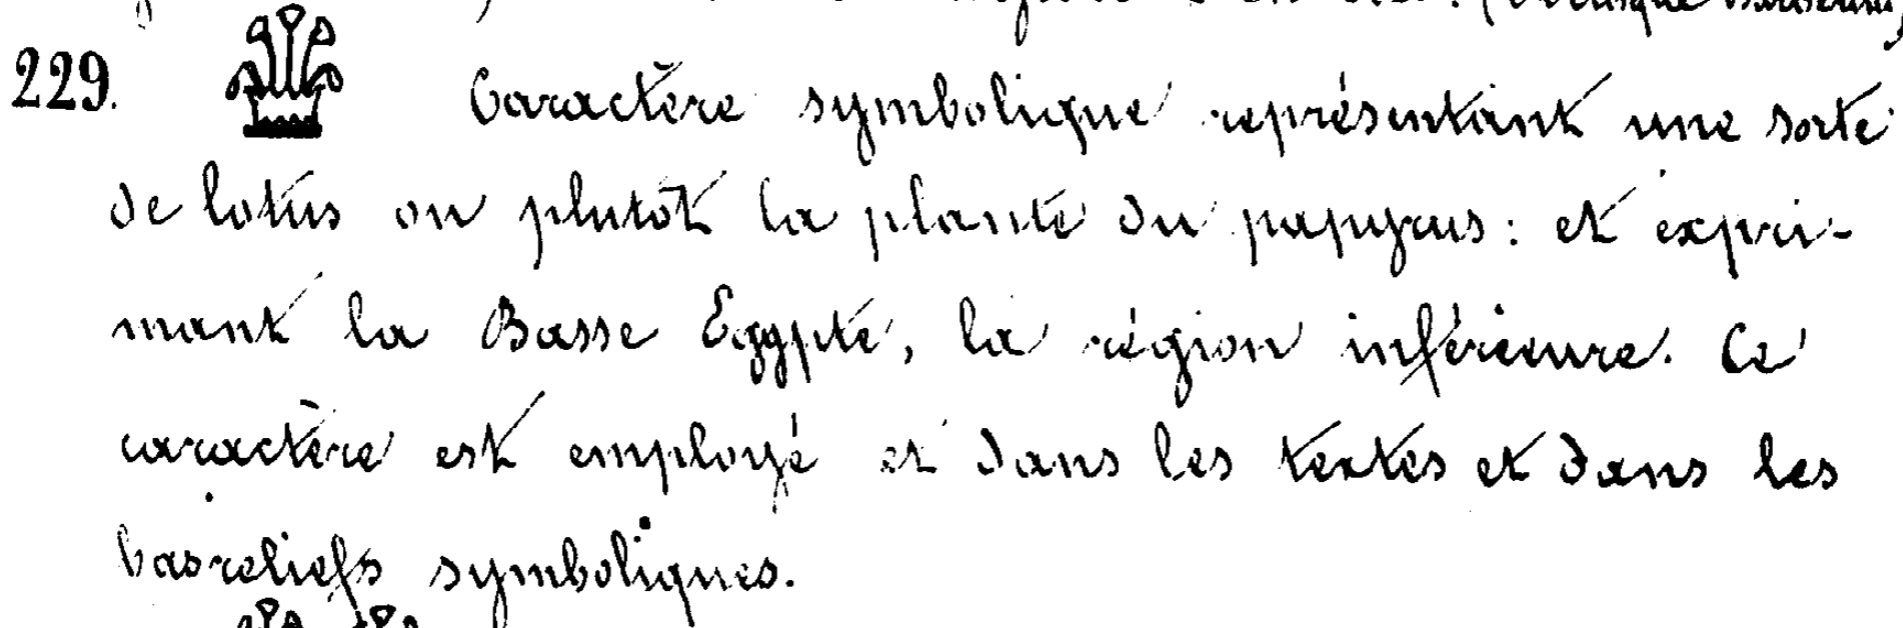 229. Caractère symbolique représentant une sorte
de lotus ou plutôt la plante du papyrus: et expri-
mant la Basse Egypte, la région inférieure. Ce
caractère est employé et dans les textes et dans les
basreliefs symboliques.